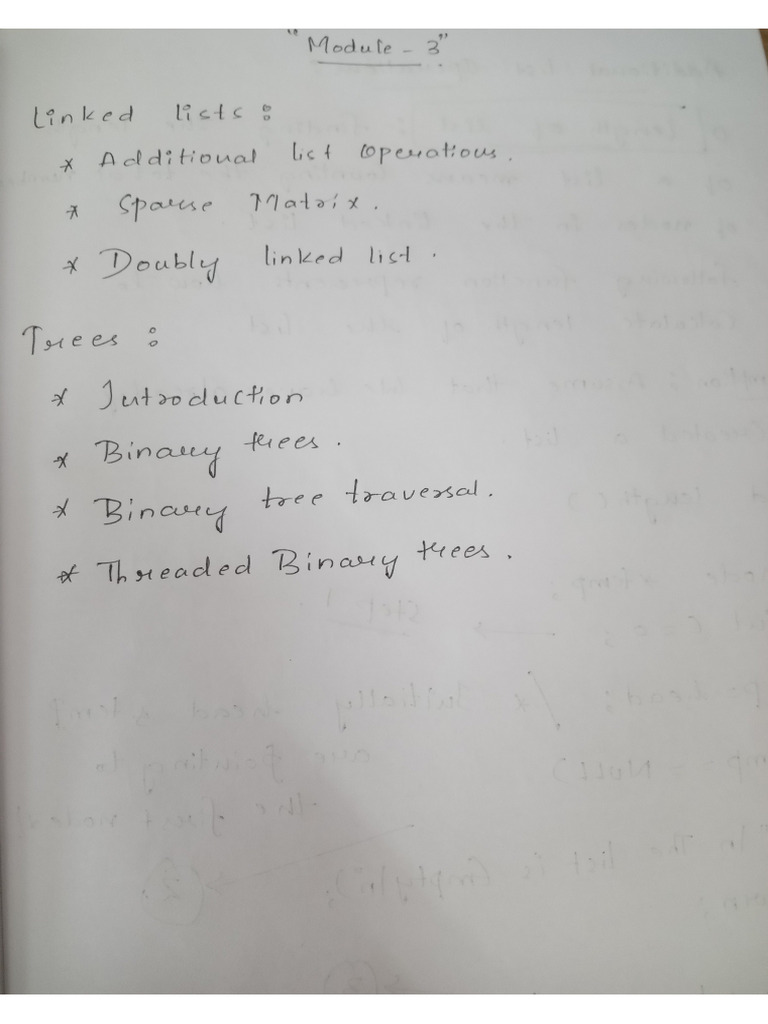 "Module - 3"
Linked lists :
* Additional list Operations.
* Sparse Matrix.
* Doubly linked list .
Trees :
* Introduction
* Binary trees .
* Binary tree traversal.
* Threaded Binary trees .